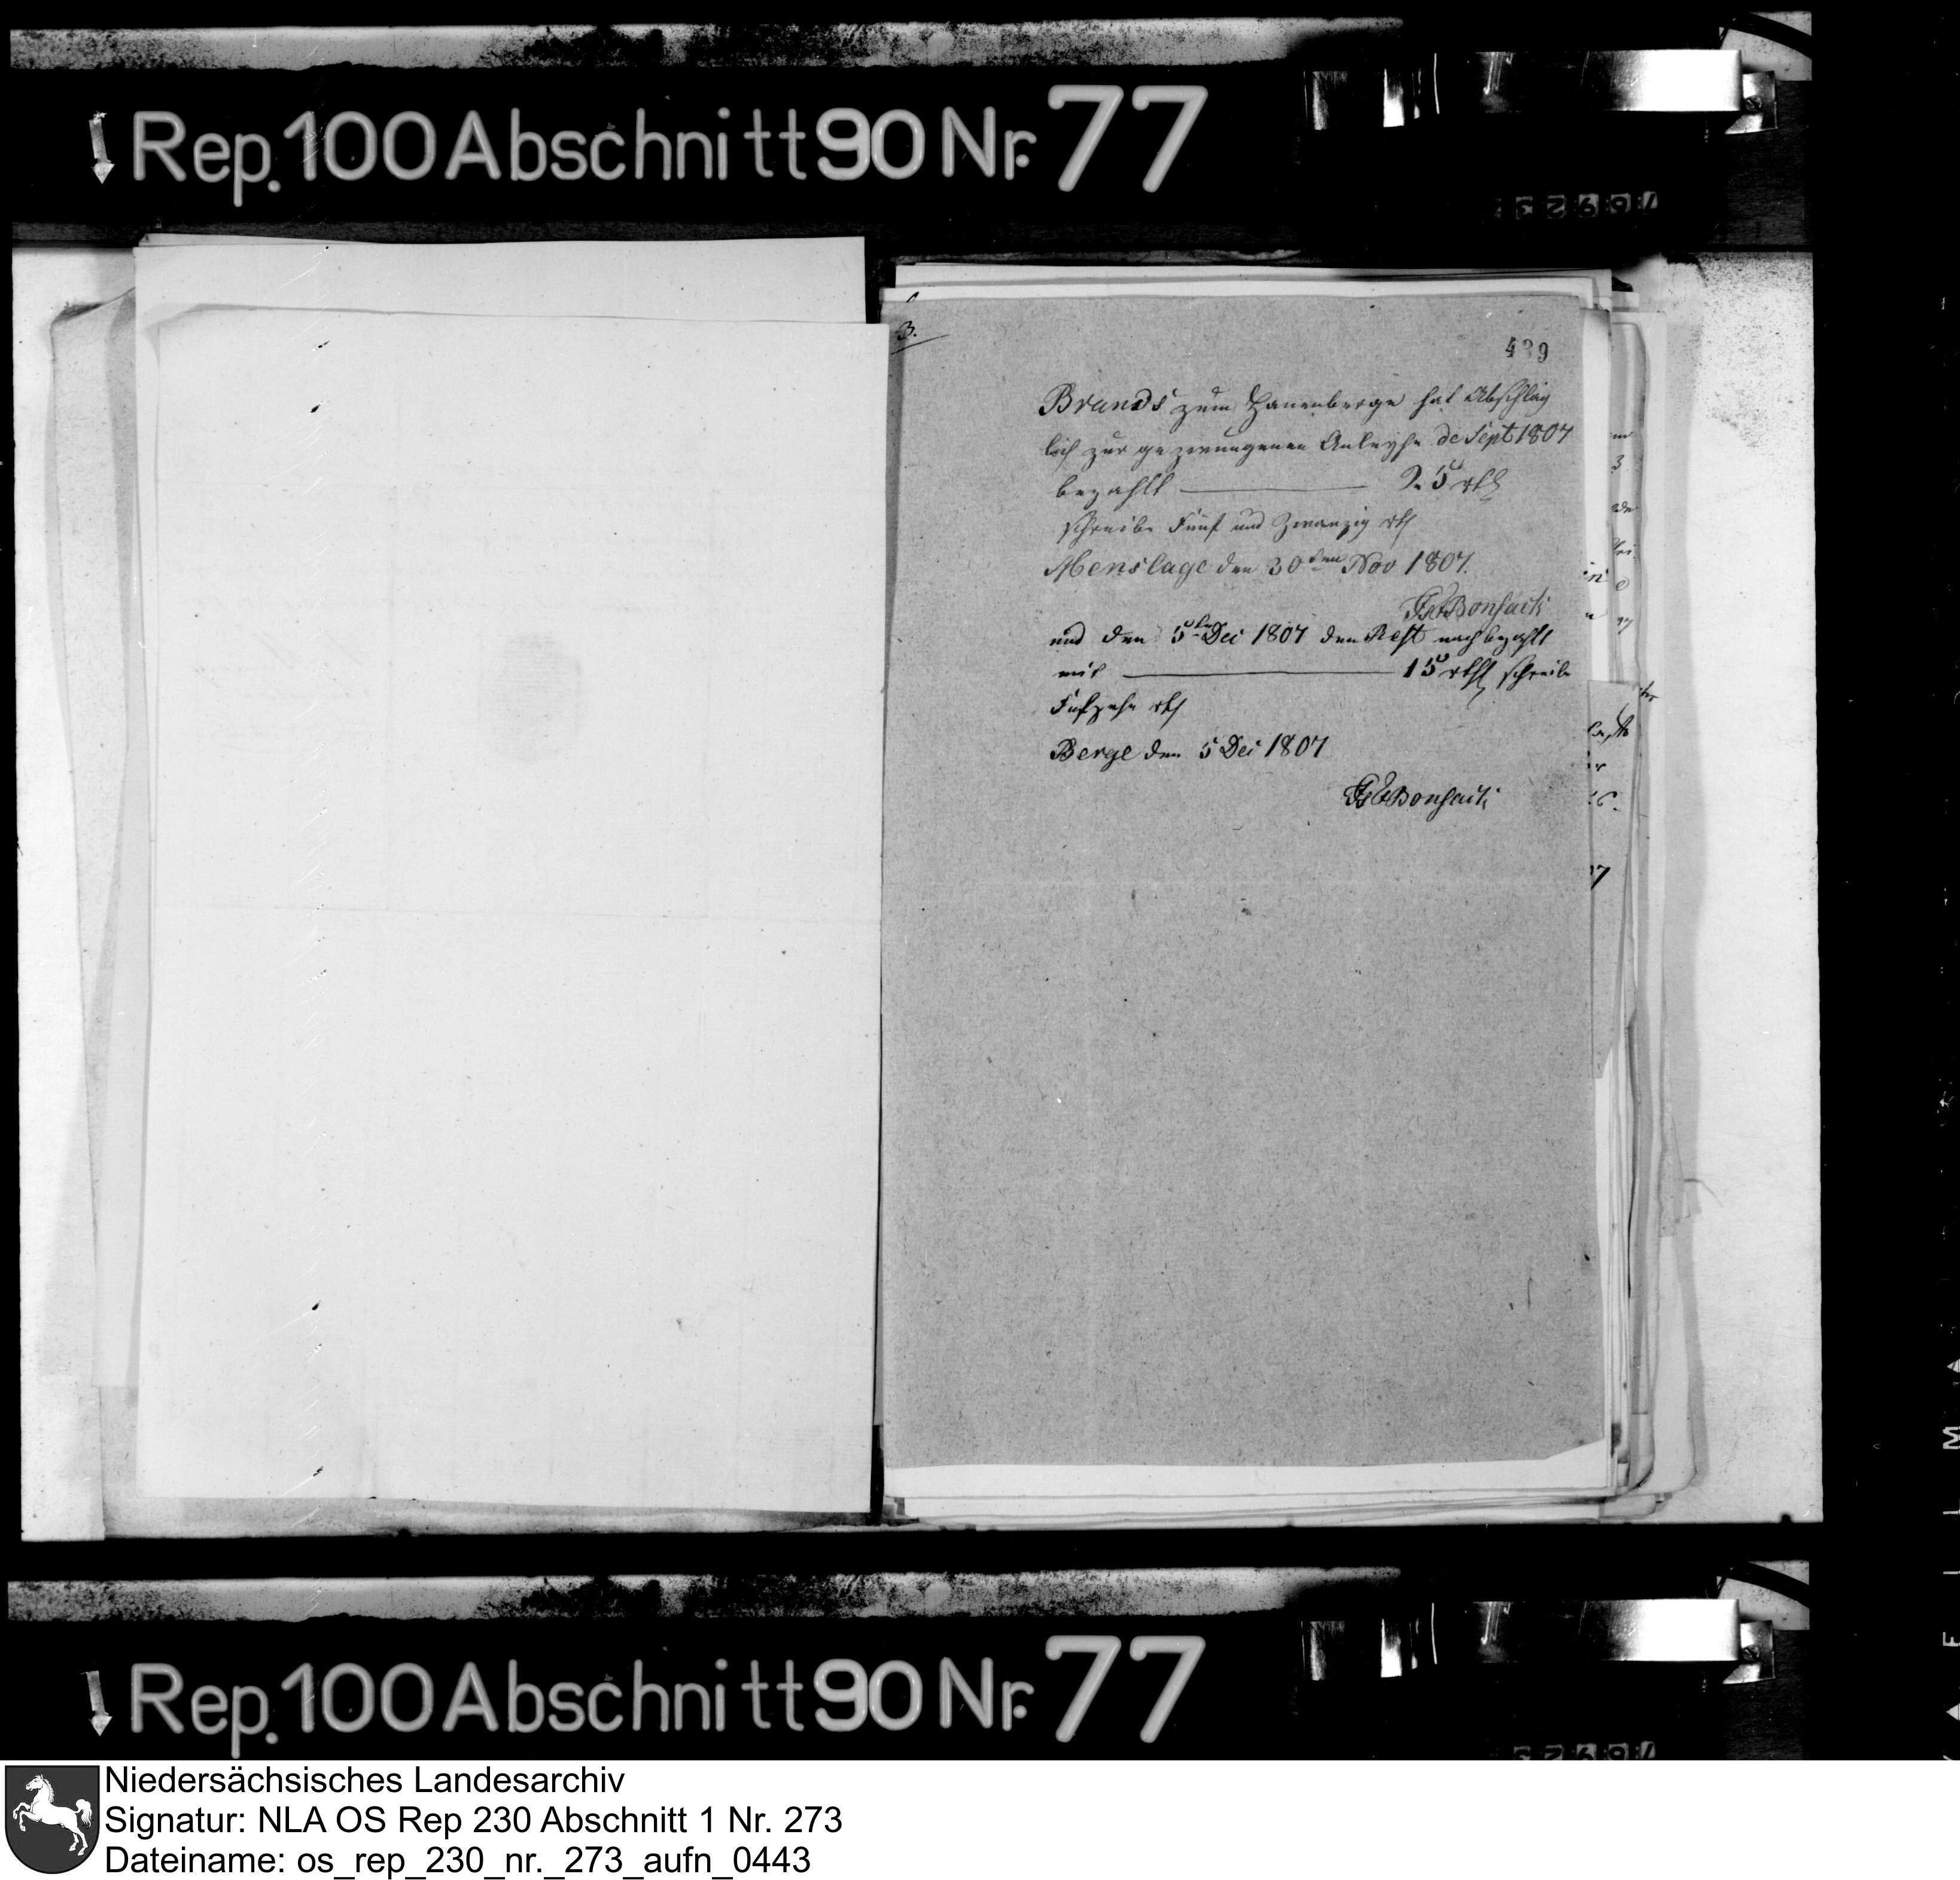 Rep. 100 Abschnitt 90 Nr. 77
3.
439
Brands zum Hanenberge hat Abschläg
lich zur gezwungenen Anleyhe de Sept 1807
bezahlt 25 rth
schreibe Fünf und Zwanzig rth
Menslage den 30ten Nov 1807.
und den 5ten Dec 1807 den Rest nachbezahlt
mit 15 rthl schreibe
Fufzehn rth
Berge den 5 Dec 1807
Rep. 100 Abschnitt 90 Nr. 77
Niedersächsisches Landesarchiv
Signatur: NLA OS Rep 230 Abschnitt 1 Nr. 273
Dateiname: os_rep_230_nr._273_aufn_0443